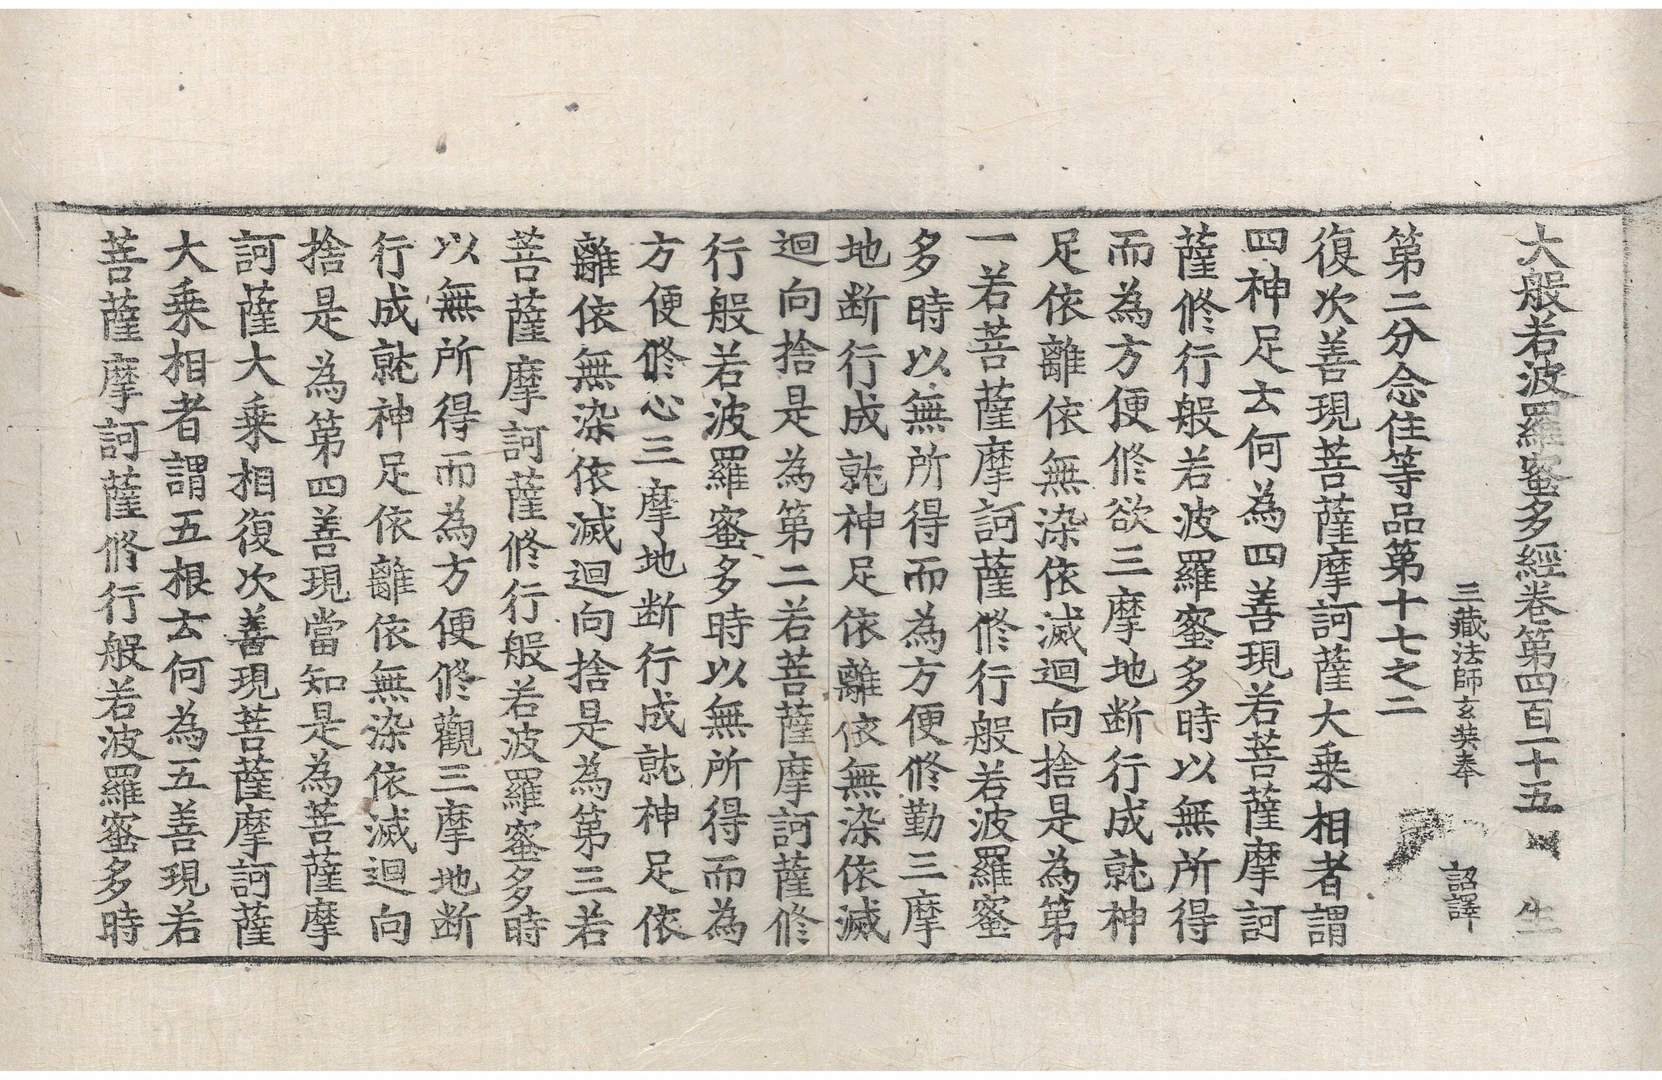 大般若波羅蜜多經卷第四百一十五 生
三藏法師玄奘奉 詔譯
第二分念住等品第十七之二
復次善現菩薩摩訶薩大乗相者謂
四神足云何為四善現若菩薩摩訶
薩修行般若波羅蜜多時以無所得
而為方便修欲三摩地断行成就神
足依離依無染依滅迴向捨是為第
一若菩薩摩訶薩修行般若波羅蜜
多時以無所得而為方便修勤三摩
地断行成就神足依離依無染依滅
迴向捨是為第二若菩薩摩訶薩修
行般若波羅蜜多時以無所得而為
方便修心三摩地断行成就神足依
離依無染依滅迴向捨是為第三若
菩薩摩訶薩修行般若波羅蜜多時
以無所得而為方便修觀三摩地断
行成就神足依離依無染依滅迴向
捨是為第四善現當知是為菩薩摩
訶薩大乗相復次善現菩薩摩訶薩
大乗相者謂五根云何為五善現若
菩薩摩訶薩修行般若波羅蜜多時